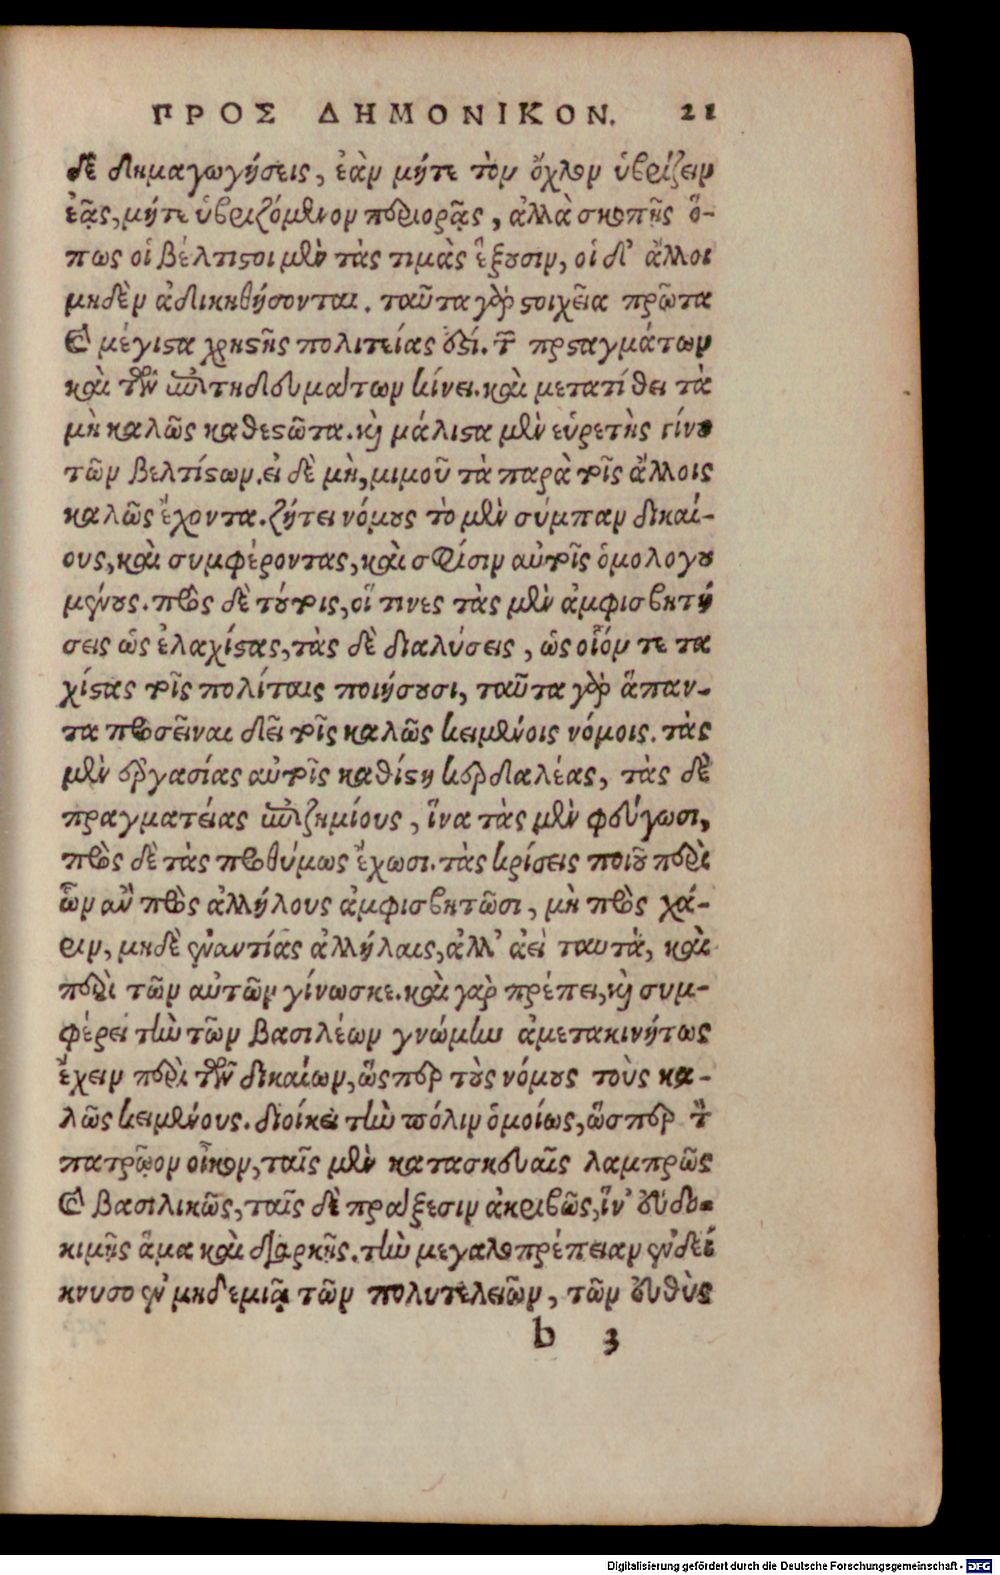 ΠΡΟΣ ΔΗΜΟΝΙΚΟΝ. 21
δὲ δημαγωγήσεις, ἐὰν μήτε τὸν ὄχλον ὑβρίζειν
ἐᾷς, μήτε ὑβριζόμενον περιορᾷς, ἀλλὰ σκοπῇς ὅ-
πως οἱ βέλτιστοι μὲν τὰς τιμὰς ἕξουσιν, οἱ δ' ἄλλοι
μηδὲν ἀδικηθήσονται. ταῦτα γὰρ στοιχεῖα πρῶτα
καὶ μέγιστα χρηστῆς πολιτείας ἐστί. τῶν προσταγμάτων
καὶ τῶν ἐπιτηδευμάτων κίνει. καὶ μετατίθει τὰ
μὴ καλῶς καθεστῶτα. καὶ μάλιστα μὲν εὑρετὴς γίνου
τῶν βελτίστων. εἰ δὲ μὴ, μιμοῦ τὰ παρὰ τοῖς ἄλλοις
καλῶς ἔχοντα. ζήτει νόμους τὸ μὲν σύμπαν δικαί-
ους, καὶ συμφέροντας, καὶ σφίσιν αὐτοῖς ὁμολογου
μένους. πρὸς δὲ τούτοις, οἵ τινες τὰς μὲν ἀμφισβητή
σεις ὡς ἐλαχίστας, τὰς δὲ διαλύσεις, ὡς οἷόν τε τα
χίστας τοῖς πολίταις ποιήσουσι, ταῦτα γὰρ ἅπαν-
τα προσεῖναι δεῖ τοῖς καλῶς κειμένοις νόμοις. τὰς
μὲν ἐργασίας αὐτοῖς καθίστη κερδαλέας, τὰς δὲ
πραγματείας ἐπιζημίους, ἵνα τὰς μὲν φεύγωσι,
πρὸς δὲ τὰς προθύμως ἔχωσι. τὰς κρίσεις ποιοῦ περὶ
ὧν ἂν πρὸς ἀλλήλους ἀμφισβητῶσι, μὴ πρὸς χά-
ριν, μηδὲ ἐναντίας ἀλλήλαις, ἀλλ' ἀεὶ ταυτὰ, καὶ
περὶ τῶν αὐτῶν γίνωσκε. καὶ γὰρ πρέπει, καὶ συμ-
φέρει τὴν τῶν βασιλέων γνώμην ἀμετακινήτως
ἔχειν περὶ τῶν δικαίων, ὥσπερ τοὺς νόμους τοὺς κα-
λῶς κειμένους. διοίκει τὴν πόλιν ὁμοίως, ὥσπερ τὸν
πατρῷον οἶκον, ταῖς μὲν κατασκευαῖς λαμπρῶς
καὶ βασιλικῶς, ταῖς δὲ πράξεσιν ἀκριβῶς, ἵν' εὐδο-
κιμῇς ἅμα καὶ διαρκῇς. τὴν μεγαλοπρέπειαν ἐνδεί
κνυσο ἐν μηδεμιᾷ τῶν πολυτελειῶν, τῶν εὐθὺς
b 3
Digitalisierung gefördert durch die Deutsche Forschungsgemeinschaft - DFG